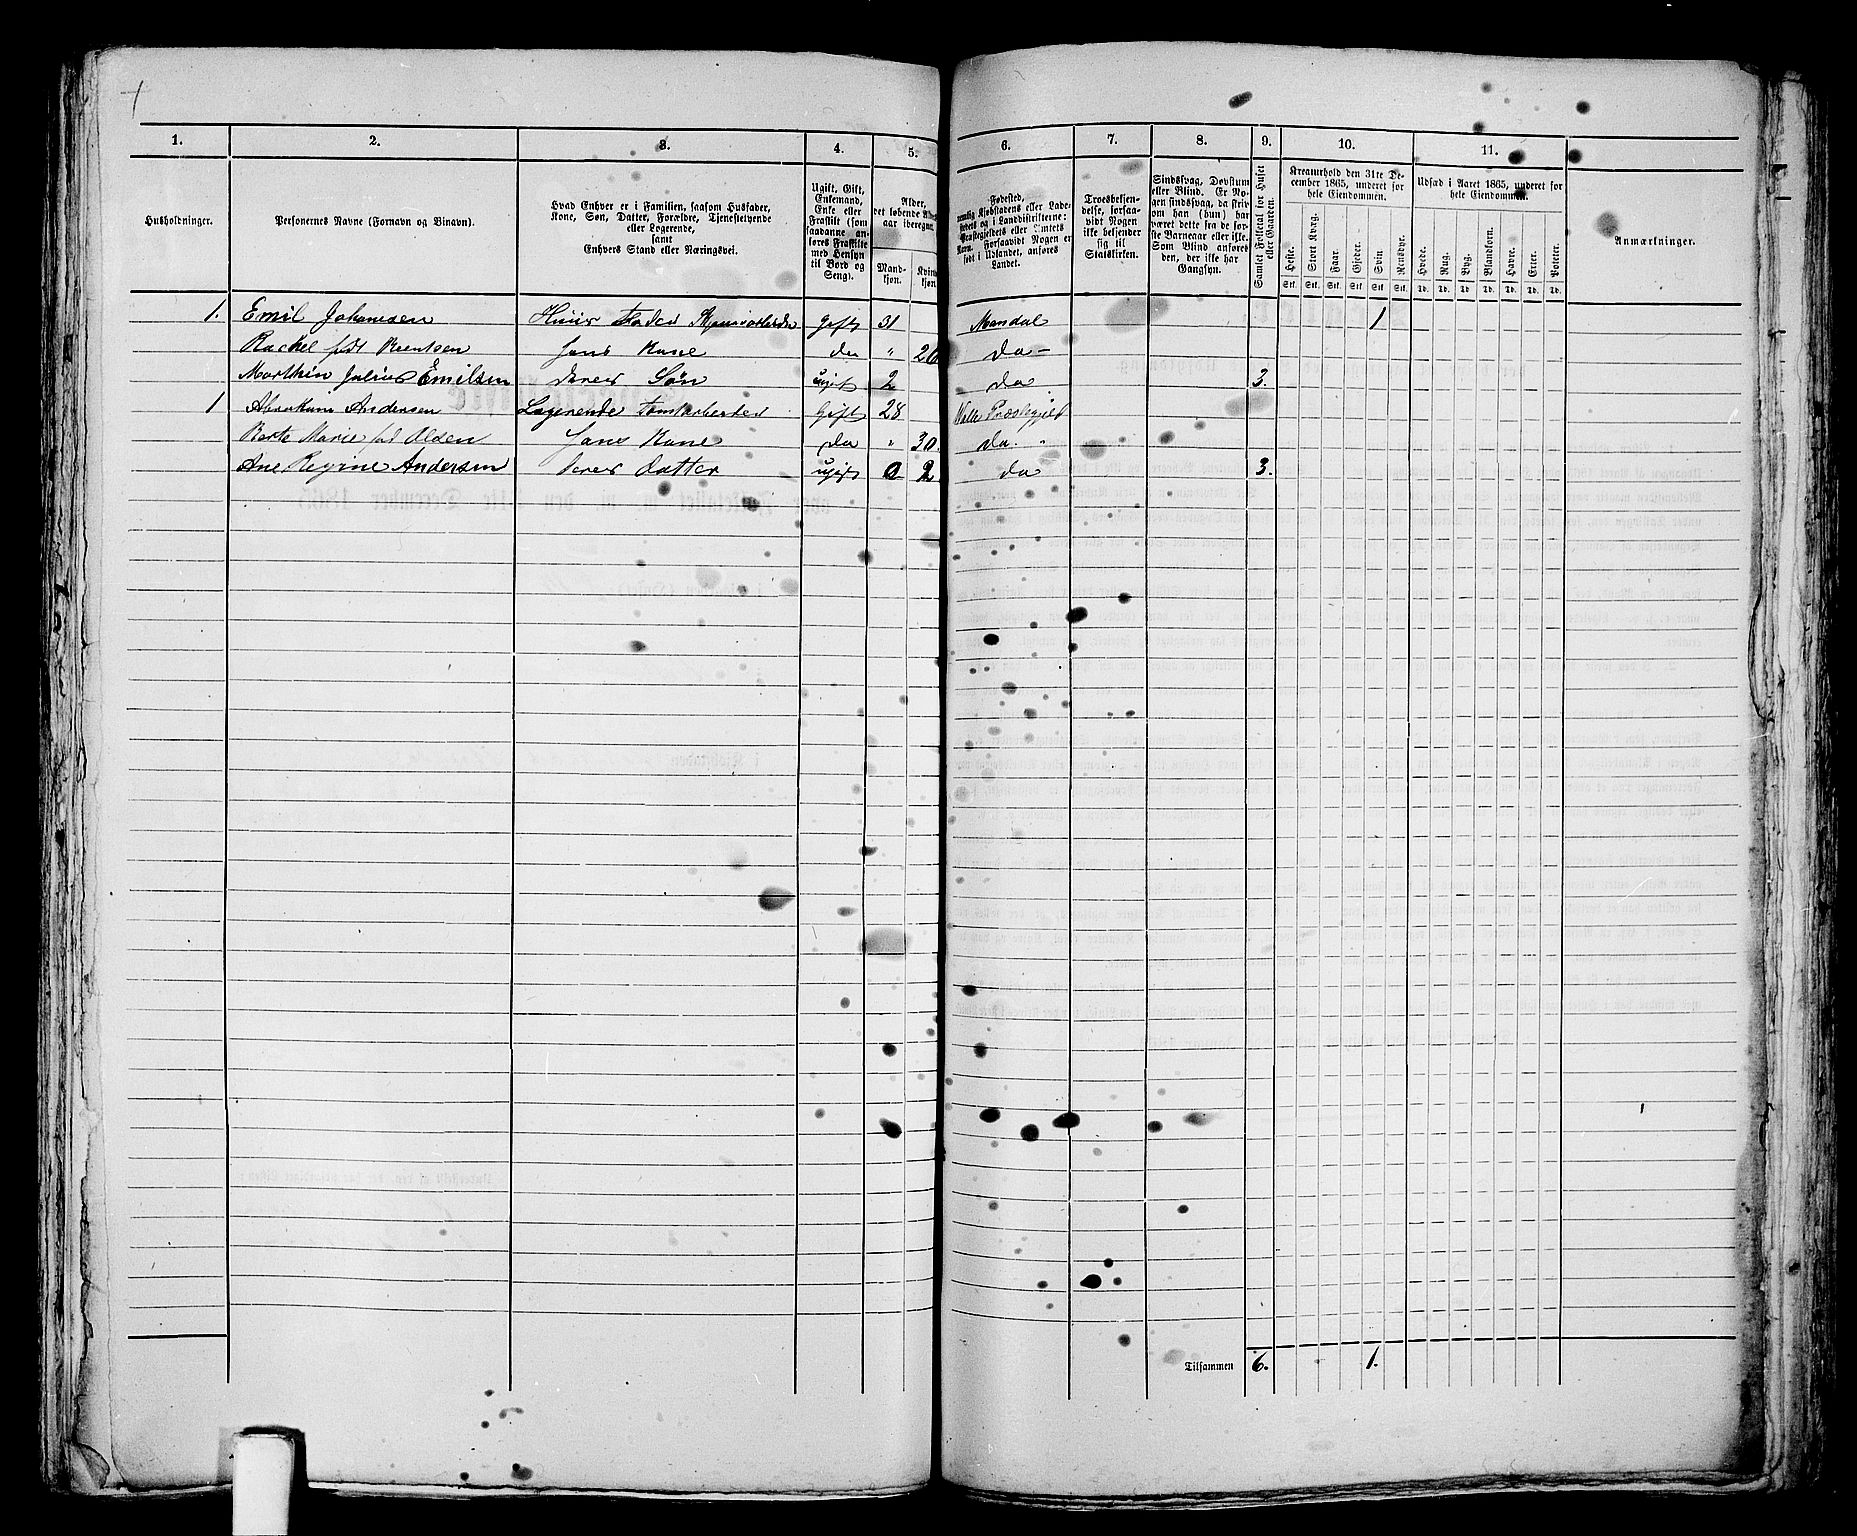 1. 2. 3. 4. 5. 6. 7. 8. 9. 10. 11.
Husholdninger.
Personernes Navne (Fornavn og Binavn).
Hvad Enhver er i Familien, saasom Husfader,
Kone, Søn, Datter, Forældre, Tjenestetyende
eller Logerende,
samt
Enhvers Stand eller Næringsvei.
Ugift, Gift,
Enkemand,
Enke eller
Fraskilt (som
saadanne an-
føres Fraskilte
med Hensyn
til Bord og
Seng).
Alder,
det løbende
aar iberegnet.
Mand-
kjøn.
Kvinde-
kjøn.
Fødested,
nemlig Kjøbstadens eller Lade-
stedets og i Landdistrikterne:
Præstegjeldets eller Amtets
Navn. Forsaavidt Nogen er
født i Udlandet, anføres
Landet.
Troesbekjen-
delse, forsaa-
vidt Nogen
ikke bekjender
sig til
Statskirken.
Sindssvag, Døvstum
eller Blind. Er No-
gen sindssvag, da skriv
om han (hun) har
været dette fra de før-
ste Barneaar eller ikke.
Som Blind anføres
den, der ikke har
Gangsyn.
Samlet Folketal for Huset
eller Gaarden.
Kreaturhold den 31te De-
cember 1865, underet for
hele Eiendommen.
Heste. Stort Kvæg. Faar. Gjeder. Svin Rensdyr.
Stk. Stk. Stk. Stk. Stk. Stk.
Udsæd i Aaret 1865, underet for
hele Eiendommen.
Hvede. Rug. Byg. Blandkorn. Havre. Erter. Poteter.
Td. Td. Td Td. Td. Td. Td.
Anmærkninger.
1. Emil Johannsen Huus Fader Gift 31 Mandal 1
Rachel født Berntsen Hans Kone do " 26 do
Marthin Julius Emilsen deres Søn ugift 2 do 3.
1 Abraham Andersen Logerende Gift 28 Præstegjeld
Berte Marie fød Olden Hans Kone do " 30. do. "
Ane Regine Andersen deres datter ugift 0 2. do 3.
Tilsammen 6. 1.